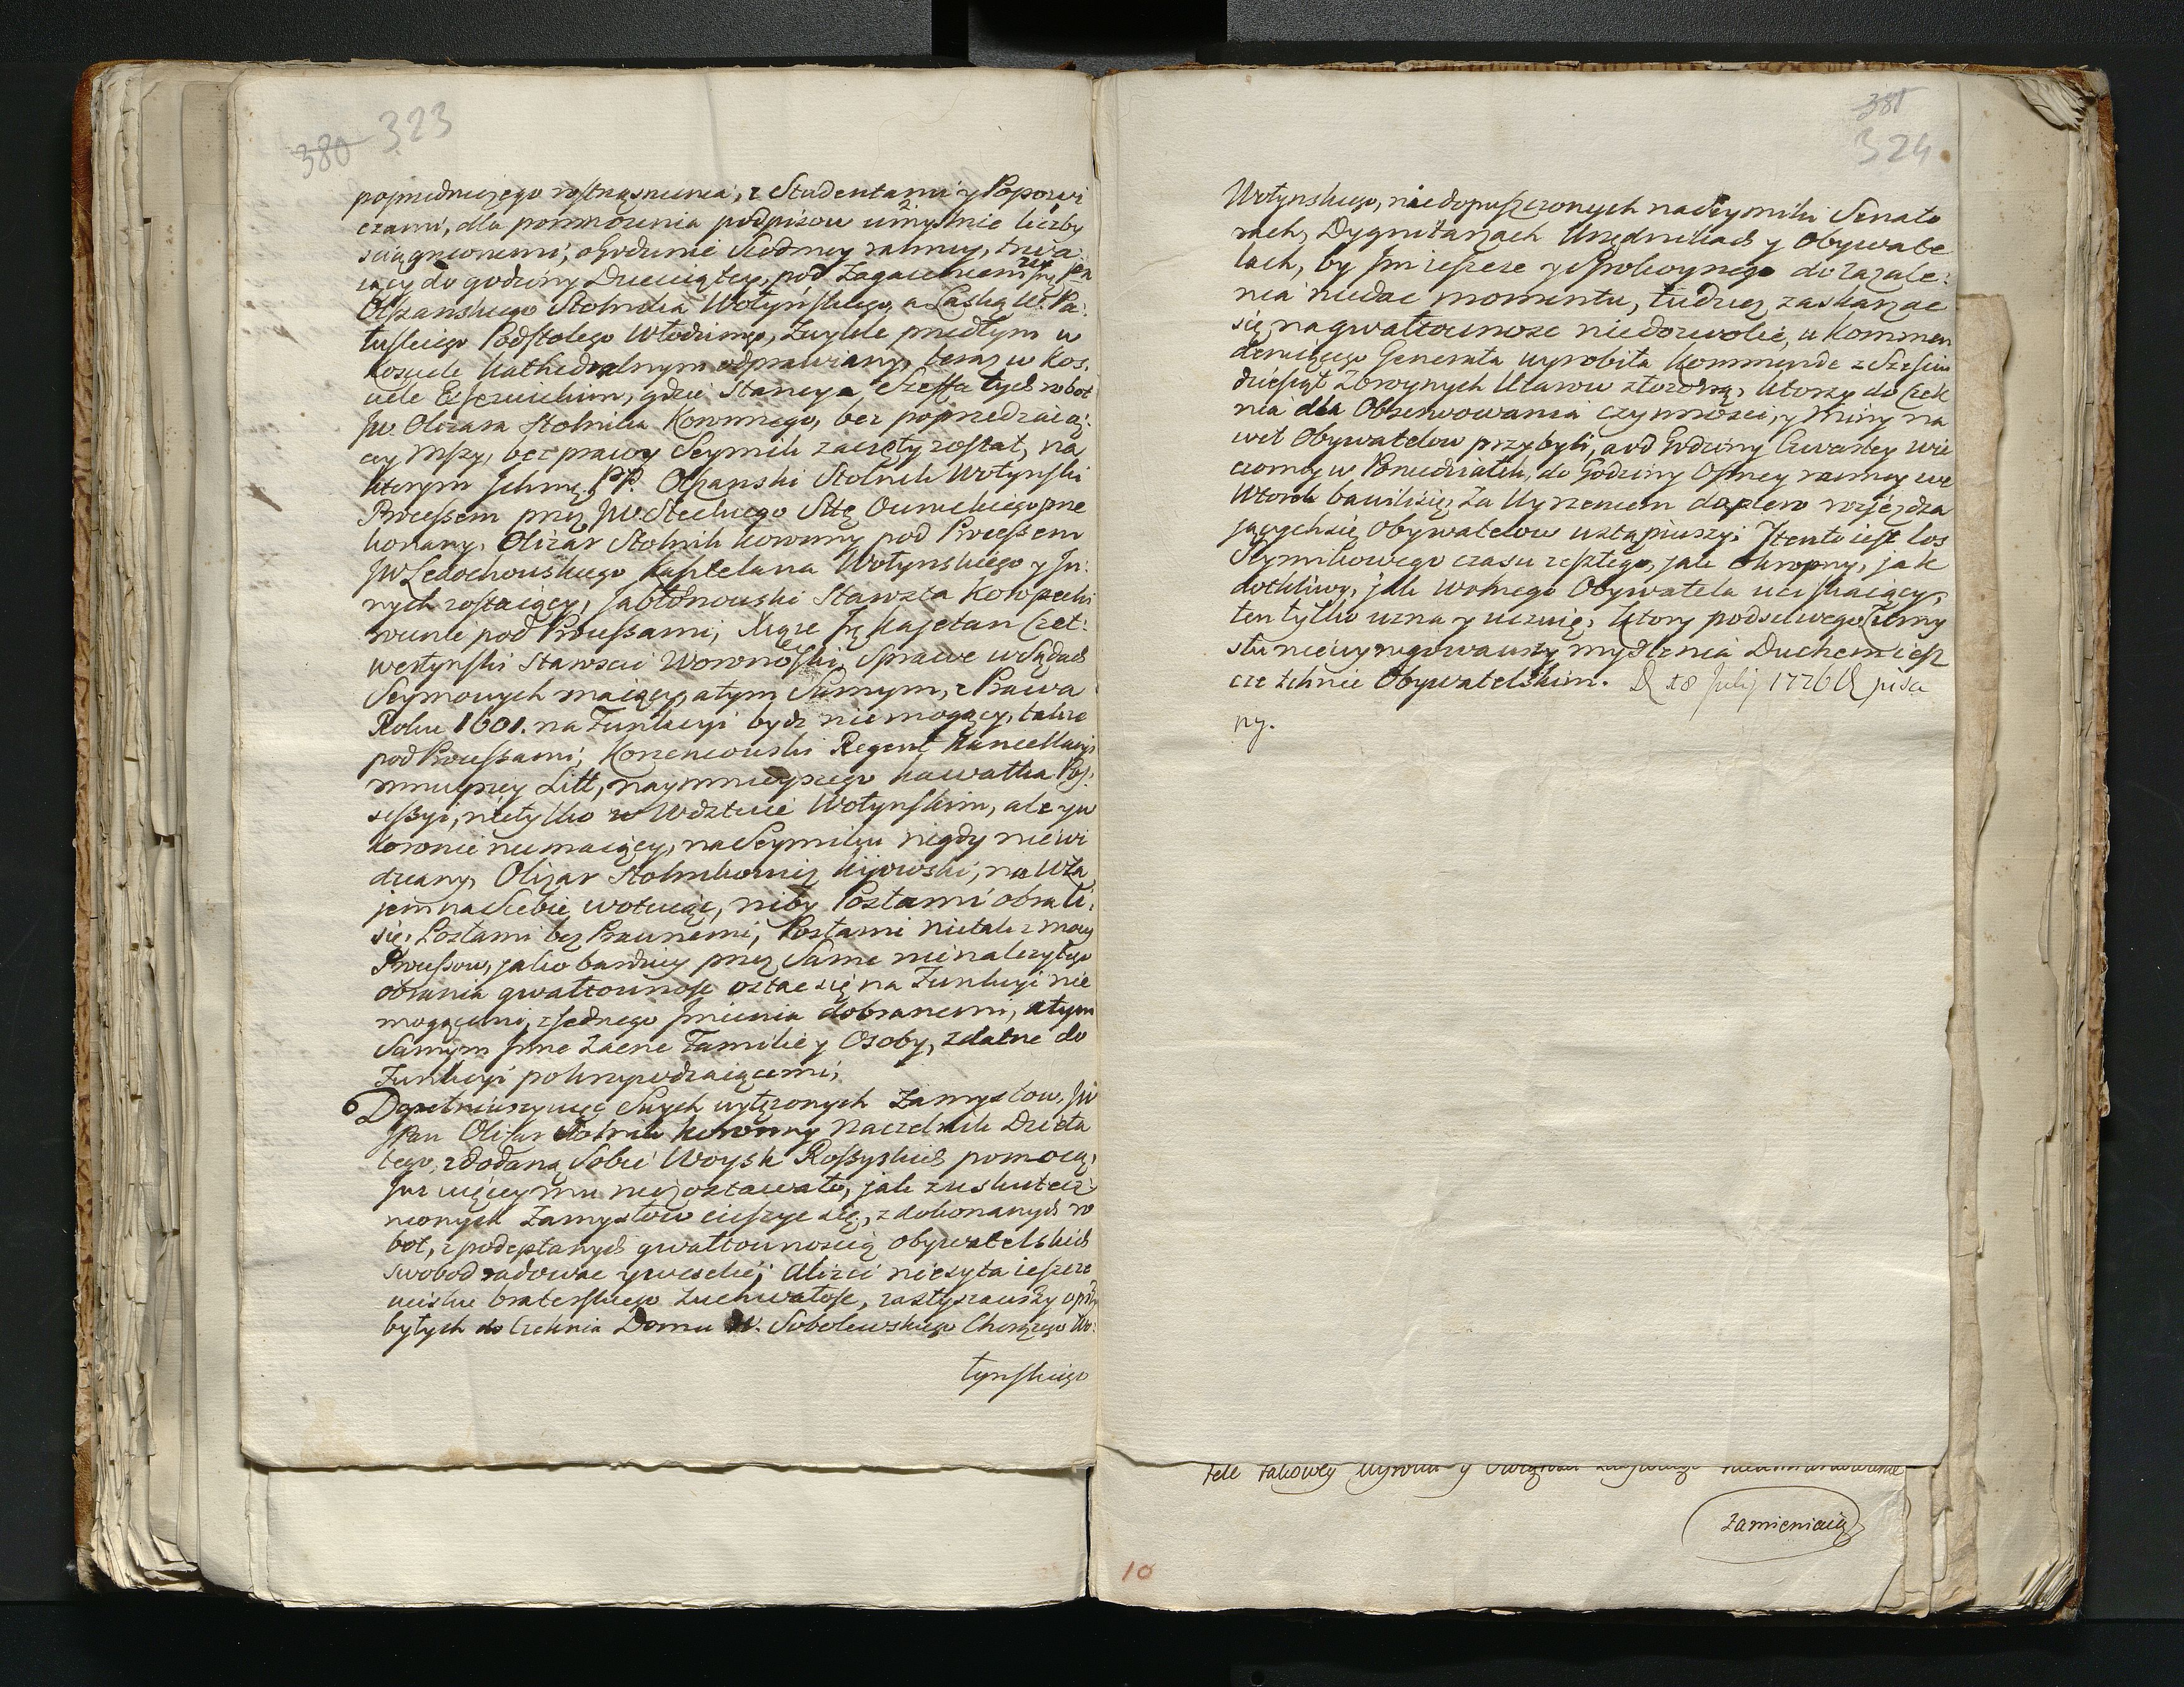 380 323
poprzedniczego rostrząsnienia, z Studentami y Popowi
czami, dla pomnożenia podpisow umyslnie liczby
sciągnionemi, o Godzinie Siodmey ranney, trwa:
iący do godziny Dziewiątey, pod Zagaieniem
Olszanskiego Stolnika Wołyńskiego, a Laską W. Pa:
tuskiego Podstolego Włodzimgo, zwykle przedtym w
Kosciele Kathedralnym odprawiany, teraz w Kos:
ciele Exjezuickim, gdzie Stancya Szeffa tych robot
JW Olizara Stolnika Koronnego, bez poprzedzaią:
cey Mszy, bez prawy Seymik zaczęty został, na
ktorym Ichmć PP. Olszanski Stolnik Wołynski
Processem przez JW. Steckiego Sttę Owruckiego prze
konany, Olizar Stolnik Koronny pod Processem
JW Ledochowskiego Kasztelana Wołynskiego y In:
nych zostaiący, Jabłonowski Starosta Kowpecki
rownie pod Processami, Xiąże Jć Kajetan Czet:
wertynski Starosta Sprawe w Sądach
Seymowych maiący, atym Samym, z Prawa
Roku 1601. na Funkcyi bydz niemogący, także
pod Processami, Korzeniowski Regent Kancellaryi
mnieyszey Litt, naymnieyszego kawałka Pos:
sessyi, nietylko w Wdztwie Wołynskim, ale y w
Koronie niemaiący, na Seymiku nigdy niewi
dziany, Olizar Stolnikowicz Kijowski, na wza
jem na Siebie wotuiąc, niby Posłami obrali
się. Posłami bez Prawnemi, Posłami nietak z mocy
Processow, jako bardziey przez Same nienależytego
obrania gwałtownosc ostac się na Funkcyi nie
mogącemi, z jednego Imienia dobranemi, atym
Samym Inne Zacne Familie y Osoby, zdatne do
Funkcyi pokrzywdzaiącemi,
6 Dopełniwszy więc Swych wytężonych Zamysłow, JW
JPan Olizar Stolnik Koronny Naczelnik Dzieła
tego, z dodaną Sobie Woysk Rossyskich pomocą,
Juz więcey mu nie zostawało, jak z uskutecz
nionych Zamysłow cieszyc się, z dokonanych ro
bot, z podeptanych gwałtownoscią Obywatelskich
swobod radowac y weselić, Alisci niesyta ieszcze
ucisku braterskiego zuchwałosc, zasłyszawszy o przy
byłych do Czeknia Domu W. Sobolewskiego Chorążego Wo:
łynskiego
381
324
Wołynskiego, niedopuszczonych na Seymiki Senato
rach, Dygnitarzach Urzędnikach y Obywate
lach, by Im ieszcze y Spokoynego do zażale:
nia niedac momentu, tudziesz zaskarzac
się na gwałtownosc niedozwolić, u Kommen
deruiącego Generała wyrobiła Kommende z Szesciu
dziesiąt Zbroynych Ułanow złożoną, ktorzy do Czek
nia dla Obserwowania czynnosci, y Miny na
wet Obywatelow przybyli, a od Godziny Czwartey wie
czorney w Poniedziałek, do Godziny Osmey ranney we
Wtorek bawili się, Za Uyrzeniem dopiero rozjeżdza
jącychsię Obywatelow ustąpiwszy: Itento iest los
Seymikowego czasu zeszłego, jak okropny, jak
dotkliwy, jak wolnego Obywatela uciskaiący,
ten tylko uzna y uczuię, ktory podselwego Umy
słu niewyrugowawszy myslenia Duchem iesz
cze tchnie Obywatelskim. D 18 Julij 1776 R pisa
ny.
tele takowey
Zamieniaią
10